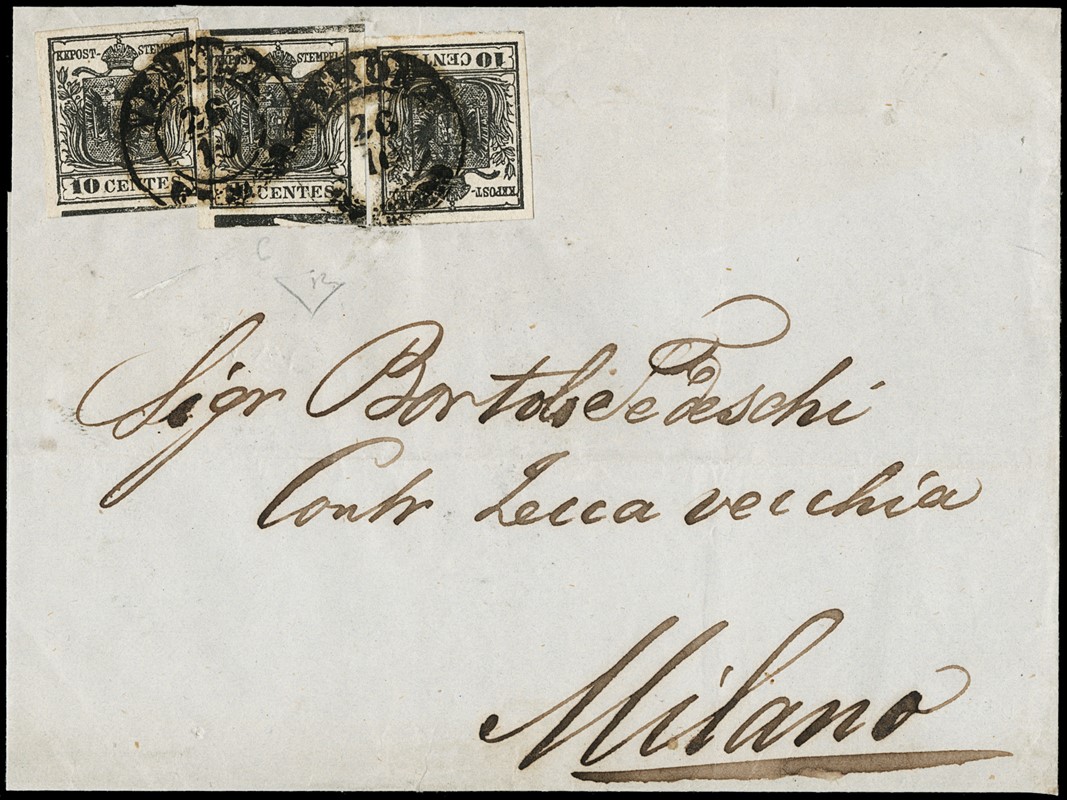 KKPOST- STEMPEL
10 CENTES
KKPOST- STEMPEL
10 CENTES
10 CENTES
KKPOST-
26
10
26
Sigr Bortolo Tedeschi
Contr Zecca vecchia
Milano